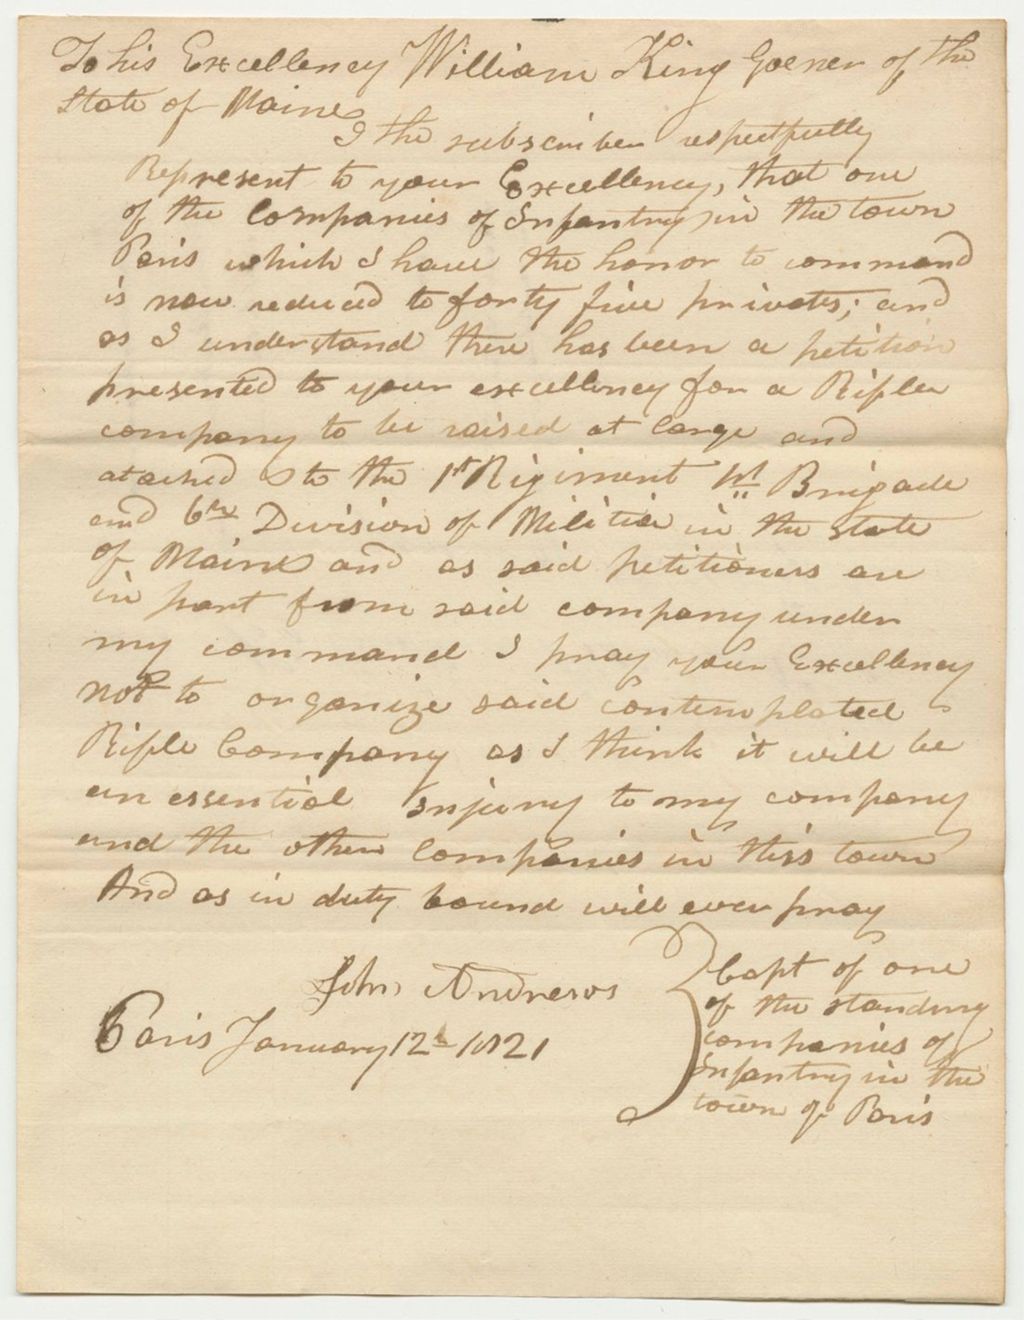 To his Excellency William King Goener of the
State of Maine
I the subscriber respectfully
Represent to your Excellency, that one
of the Companies of Infantry in the town
Paris which I have the honor to command
is now reduced to forty five privates; and
as I understand there has been a petition
presented to your excellency for a Rifle
company to be raised at large and
atached to the 1st Rigiment 1st Brigade
and 6th Division of Militia in the state
of Maine and as said petitioners are
in part from said company under
my command I pray your Excellency
not to organize said contemplated
Rifle Company as I think it will be
an essential injury to my company
and the other Companies in this town
And as in duty bound will ever pray
John Andrews
Paris January 12th 1821
Capt of one
of the standing
companies of
Infantry in the
town of Paris